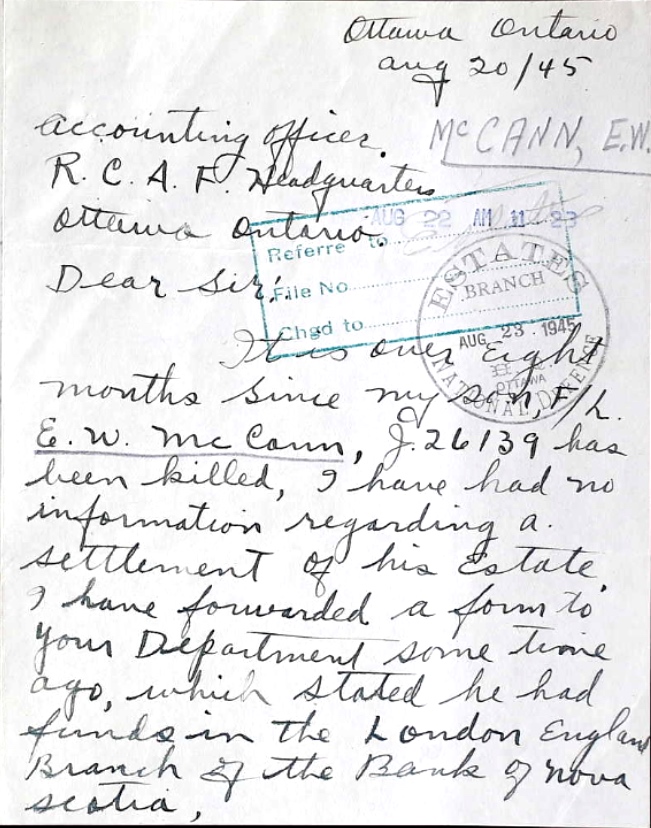 Ottawa Ontario
Aug 20/45
Accounting officer.
McCANN, E.W.
R. C. A. F. Headquarters
Ottawa Ontario.
AUG 22 AM 11 23
Referre to
File No
Chgd to
ESTATES
BRANCH
AUG 23 1945
OTTAWA
NATIONAL DEFENSE
Dear Sir:
It is over Eight
months since my son, F/L.
E. W. McCann, J.26139 has
been killed, I have had no
information regarding a.
settlement of his Estate.
I have forwarded a form to
your Department some time
ago, which stated he had
funds in the London England
Branch of the Bank of Nova
Scotia,